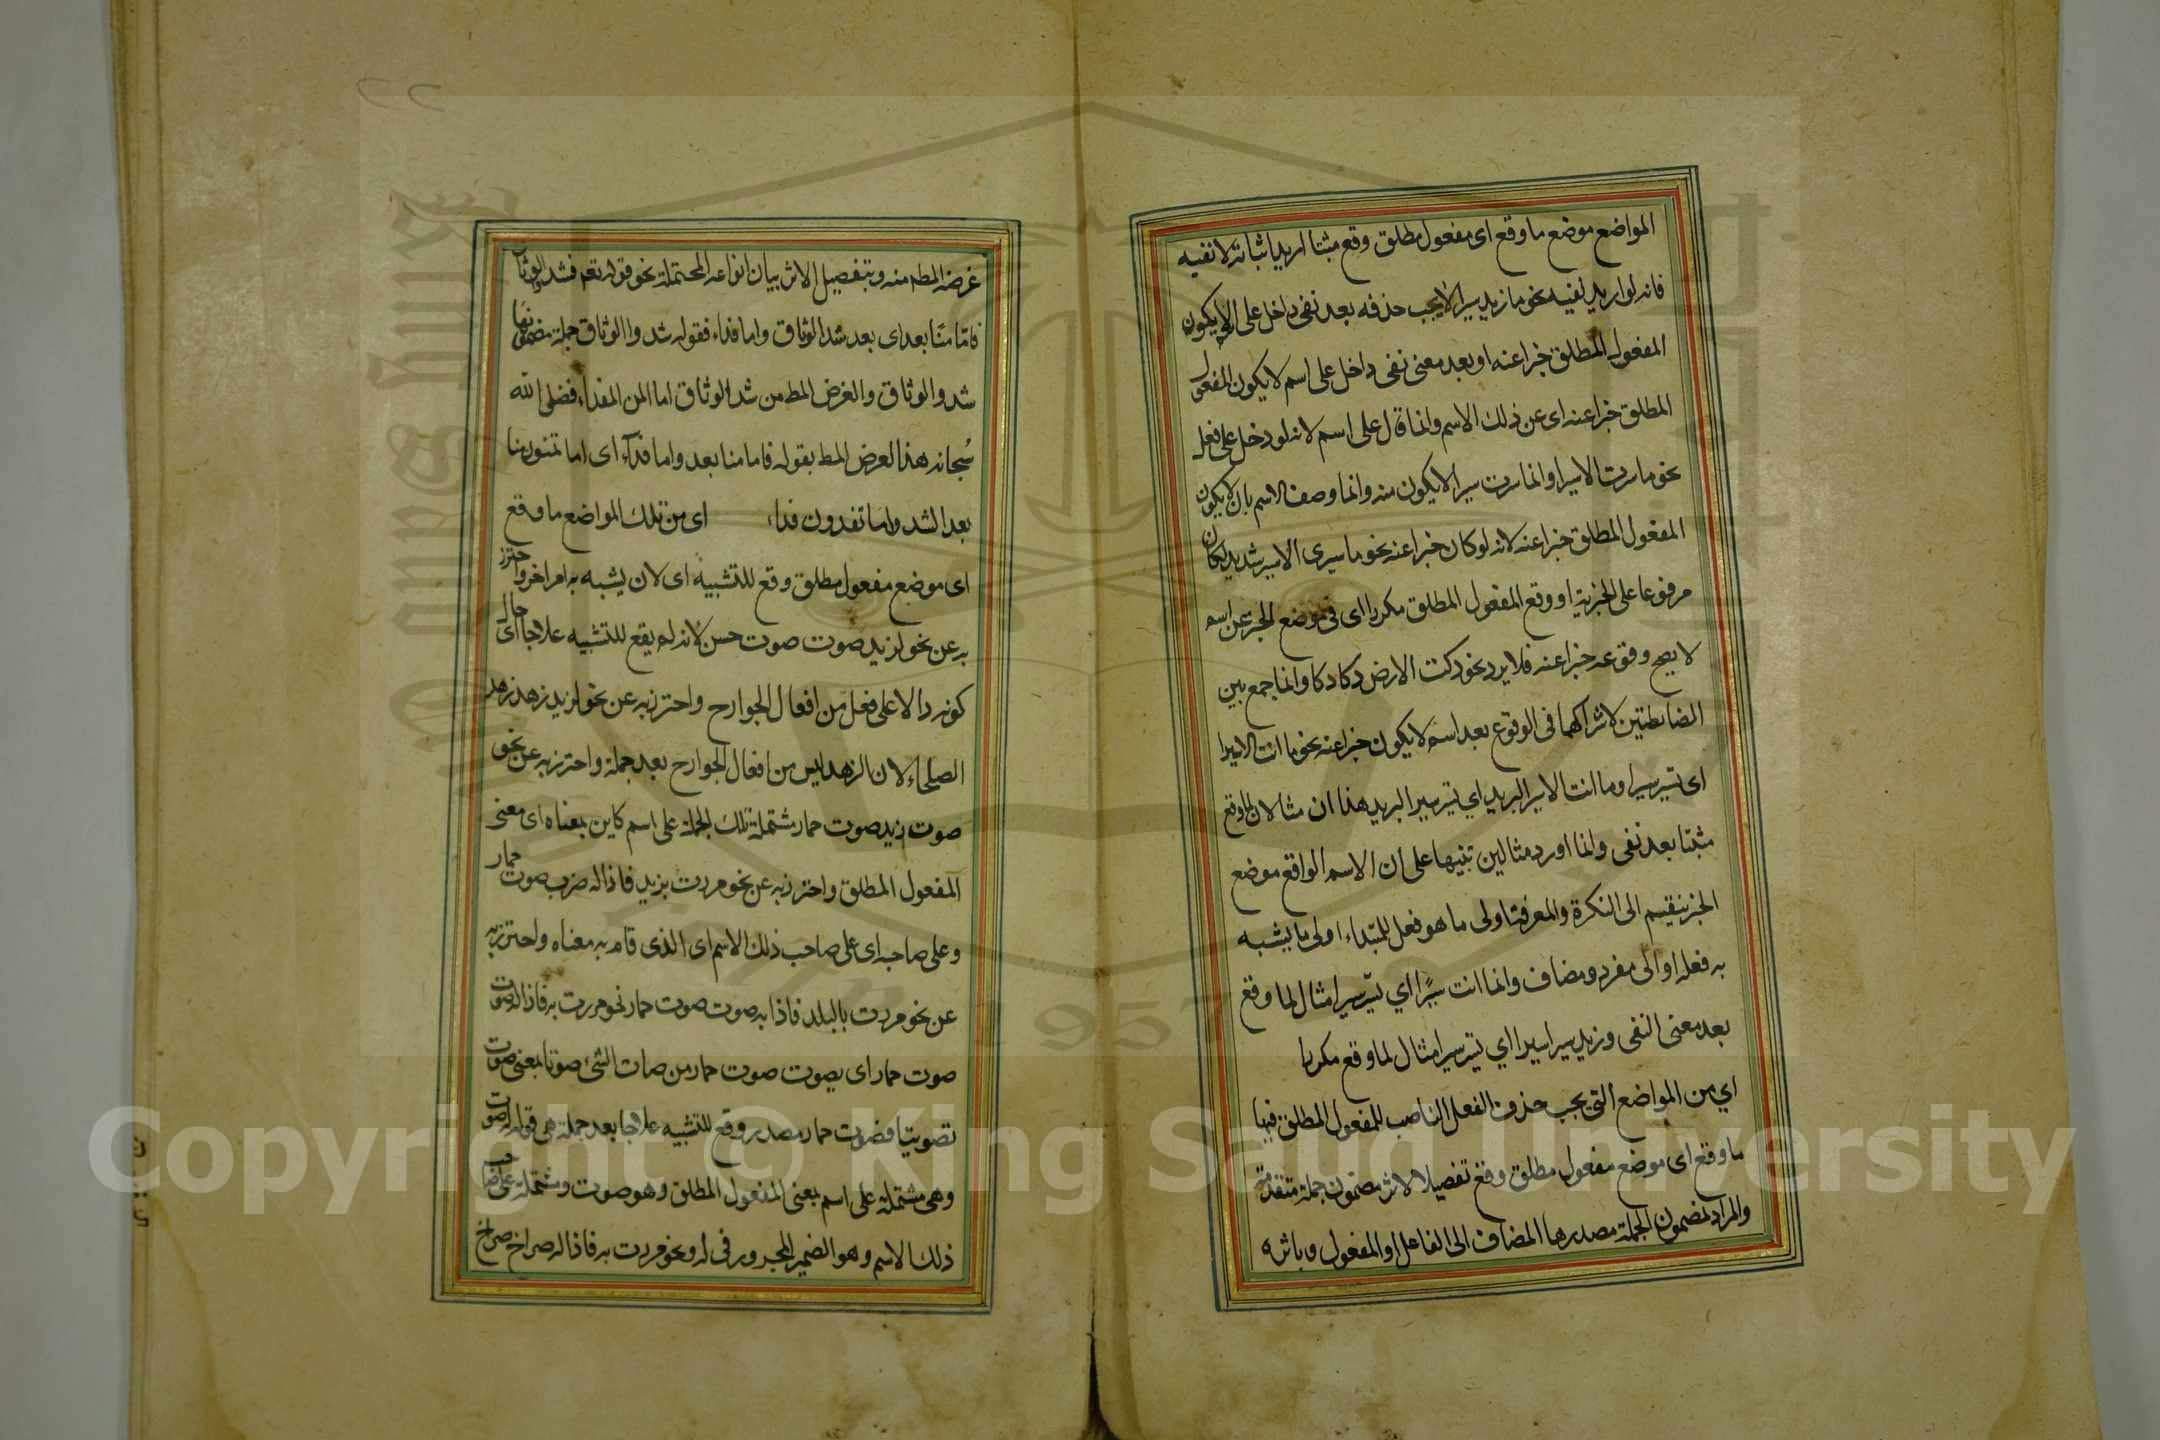 المواضع موضع ما وقع اى مفعول مطلق وقع مثبتا اريد اثباته لا نفيه
فانه لو اريد نفيه نحو ما زيد يسير سيرا لا يجب حذفه بعد نفى داخل على اسم لا يكون
المفعول المطلق خبرا عنه او بعد معنى نفى داخل على اسم لا يكون المفعول
المطلق خبرا عنه اى عن ذلك الاسم وانما قال على اسم لانه لو دخل على فعل
نحو ما سرت الا سيرا وانما سرت سيرا لا يكون منه وانما وصف الاسم بان لا يكون
المفعول المطلق خبرا عنه لانه لو كان خبرا عنه نحو ما سيرى الا سير شديد لكان
مرفوعا على الخبرية او وقع المفعول المطلق مكررا اى فى موضع الخبر عن اسم
لا يصح وقوعه خبرا عنه فلا يرد نحو دكت الارض دكا دكا وانما جمع بين
الضابطتين لاشتراكهما فى الوقوع بعد اسم لا يكون خبرا عنه نحو ما انت الا سيرا
اى تسير سيرا وما انت الا سير البريد اي تسير سير البريد هذا ان مثالان لما وقع
مثبتا بعد نفى وانما اورد مثالين تنبيها على ان الاسم الواقع موضع
الخبر ينقسم الى النكرة والمعرفة او الى ما هو فعل للمبتداء او الى ما يشبه
به فعله او الى مفرد ومضاف وانما انت سيرًا اي تسير سيرا مثال لما وقع
بعد معنى النفى وزيد سيرا سيرا اي يسير سيرا مثال لما وقع مكررا
اي من المواضع التى يجب حذف الفعل الناصب للمفعول المطلق فيها
ما وقع اى موضع مفعول مطلق وقع تفصيلا لاثر مضمون جملة متقدمة
والمراد بمضمون الجملة مصدرها المضاف الى الفاعل او المفعول وباثره
غرضه المط منه وبتفصيل الاثر بيان انواعه المحتملة نحو قوله تعم فشدوا الوثاق
فامّا منّا بعد اى بعد شد الوثاق واما فداء فقوله شدوا الوثاق جملة مضمونها
شد والوثاق والغرض المط من شد الوثاق اما المن الفداء ففصل الله
سُبحانه هذا الغرض المط بقوله فاما منا بعد واما فدآء اى اما تمنون منا
بعد الشد واما تفدون فداء اى من تلك المواضع ما وقع
اى موضع مفعول مطلق وقع للتشبيه اى لان يشبه به امر اخر واحترز
به عن نحو لزيد صوت صوت حسن لانه لم يقع للتشبيه علاجا اى حال
كونه دالا على فعل من افعال الجوارح واحترز به عن نحو لزيد زهد زهد
الصلحاء لان الزهد ليس من افعال الجوارح بعد جملة واحترز به عن نحو
صوت زيد صوت حمار مشتملة تلك الجملة على اسم كاين بمعناه اى معنى
المفعول المطلق واحترز به عن نحو مررت بزيد فاذا له ضرب صوت حمار
وعلى صاحبه اى على صاحب ذلك الاسم اى الذى قام به معناه واحترز به
عن نحو مررت بالبلد فاذا به صوت صوت حمار نحو مررت به فاذا له صوت
صوت حمار اى يصوت صوت حمار من صات الشئ صوتا بمعنى صوت
تصويتا فصوت حمار مصدر وقع للتشبيه علاجا بعد جملة هى قوله له صوت
وهى مشتملة على اسم بمعنى المفعول المطلق وهو صوت ومشتملة على صاحب
ذلك الاسم وهو الضمير المجرور فى له ونحو مررت به فاذا له صراخ صراخ
Copyright © King Saud University
1957